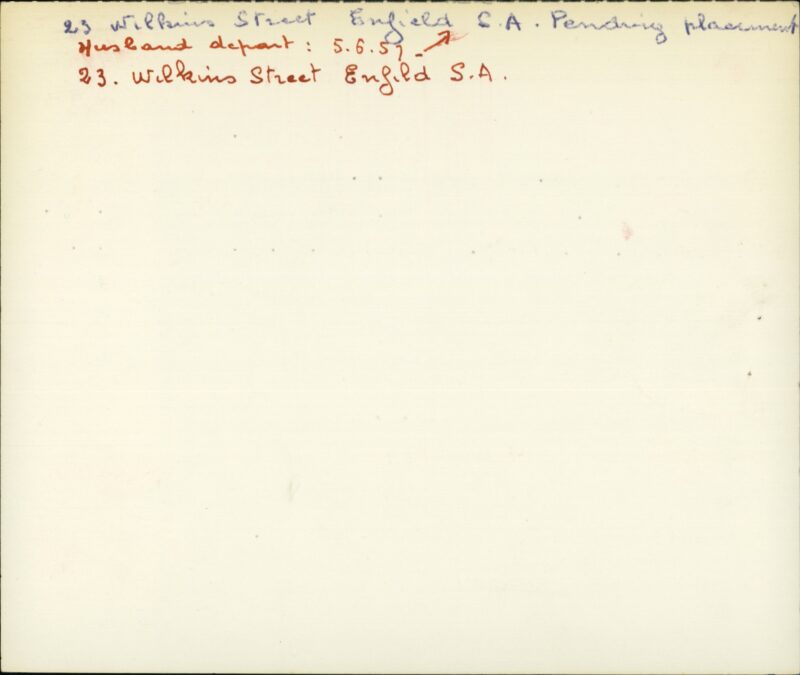 23 Wilkins Street Enfield S.A. Pending placement
Husband depart: 5.6.57 -
23. Wilkins Street Enfild S.A.